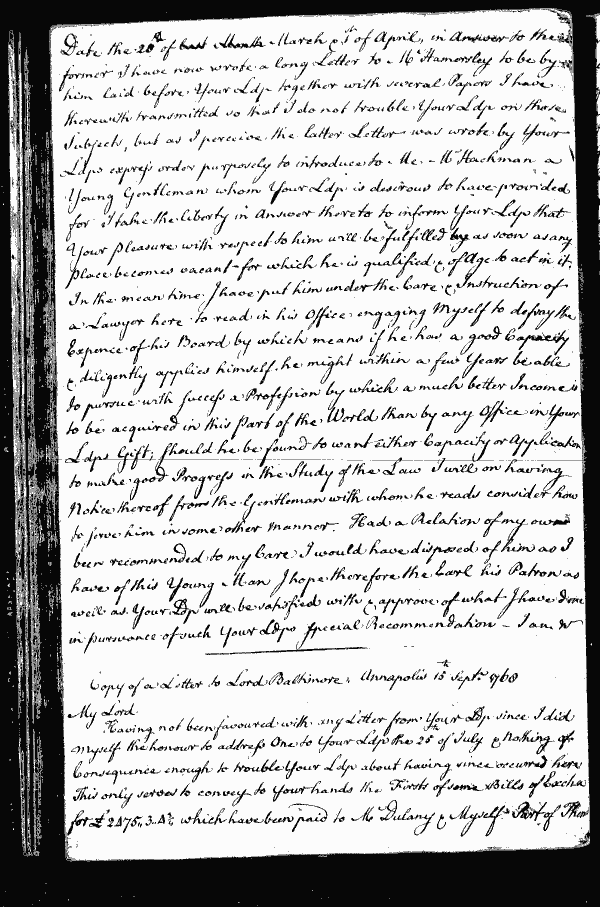 Date the 20th of last Month March & 1st of April, in Answer to the
former I have now wrote a long Letter to Mr Hamersley to be by
him laid before Your Ldp together with several Papers I have
therewith transmitted so that I do not trouble Your Ldp on those
Subjects, but as I perceive the latter Letter was wrote by Your
Ldps express order purposely to introduce to Me Mr Hackman a
Young Gentleman whom Your Ldp is desirous to have provided
for I take the liberty in Answer thereto to inform Your Ldp that
Your pleasure with respect to him will be fulfilled as soon as any
place becomes vacant for which he is qualified & of Age to act in it.
In the mean time I have put him under the Care & Instruction of
a Lawyer here to read in his Office engaging Myself to defray the
Expence of his Board by which means if he has a good Capacity
& diligently applies himself he might within a few Years be able
to pursue with success a Profession by which a much better Income is
to be acquired in this Part of the World than by any Office in Your
Ldps Gift; Should he be found to want either Capacity or Application
to make good Progress in the Study of the Law I will on having
Notice thereof from the Gentleman with whom he reads consider how
to serve him in some other manner. Had a Relation of my own
been recommended to my Care I would have disposed of him as I
have of this Young Man I hope therefore the Earl his Patron as
well as Your Ldp will be satisfied with & approve of what I have done
in pursuance of such Your Ldps special Recommendation - I am &c
Copy of a Letter to Lord Baltimore. Annapolis 15th Septr 1768
My Lord
Having not been favoured with any Letter from Your Ldp since I did
myself the honour to address One to Your Ldp the 25th of July & nothing of
Consequence enough to trouble Your Ldp about having since occurred here
This only serves to convey to Your hands the Firsts of some Bills of Excha
for £2475..3..4 which have been paid to Mr Dulany & Myself Part of Them